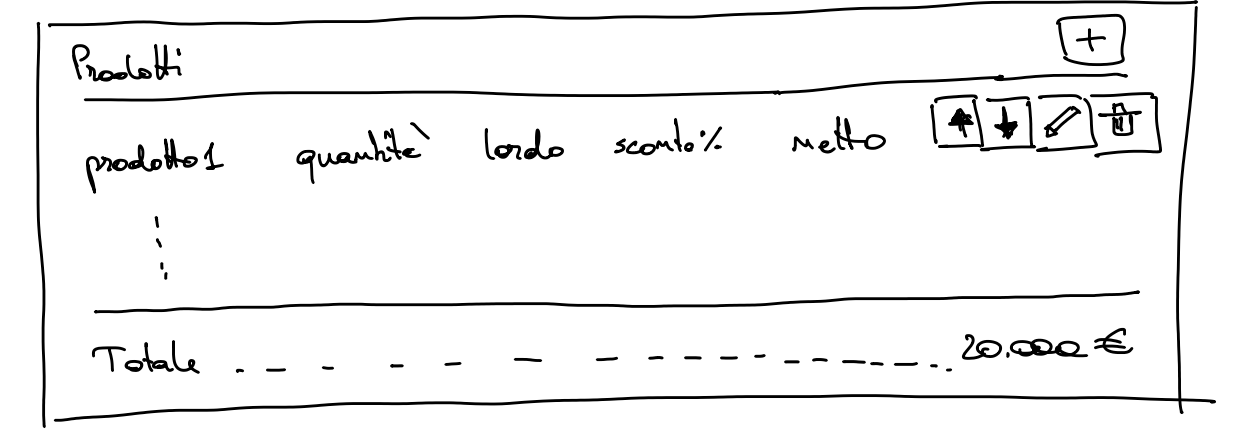 Prodotti +
prodotto 1 quantità lordo sconto% netto
Totale 20.000 €